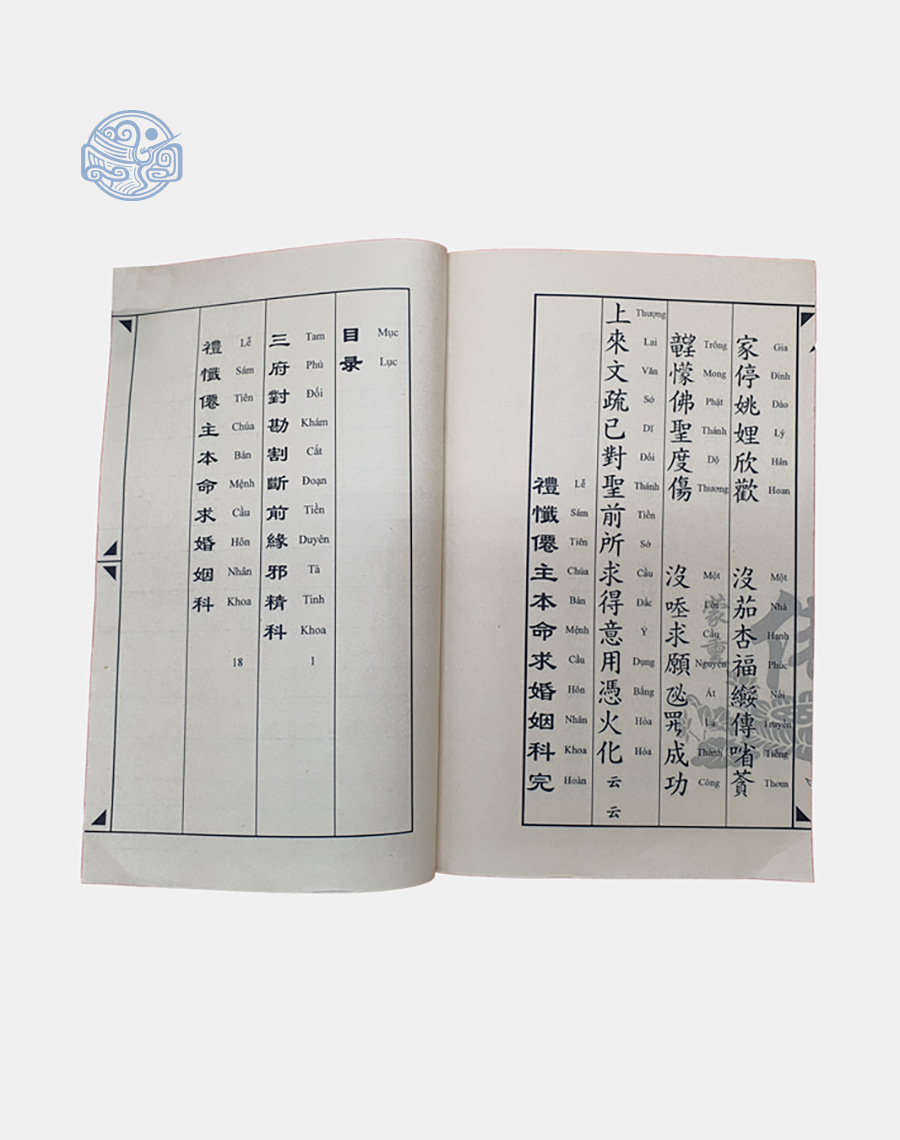 家停姚娌欣歡 沒茄杏福綏傳㗂薋
Gia Đình Đào Lý Hân Hoan Một Nhà Hạnh Phúc Nối Truyền Tiếng Thơm
懞佛聖度傷 沒求願成功
Trông Mong Phật Thánh Độ Thương Một Lời Cầu Nguyện Ắt Là Thành Công
上來文疏已對聖前所求得意用憑火化云云
Thượng Lai Văn Sớ Dĩ Đối Thánh Tiền Sở Cầu Đắc Ý Dụng Bằng Hỏa Hóa
禮懺僊主本命求婚姻科完
Lễ Sám Tiên Chúa Bản Mệnh Cầu Hôn Nhân Khoa Hoàn
目录
Mục Lục
三府對勘割斷前緣邪精科
Tam Phủ Đối Khám Cắt Đoạn Tiền Duyên Tà Tinh Khoa
1
禮懺僊主本命求婚姻科
Lễ Sám Tiên Chúa Bản Mệnh Cầu Hôn Nhân Khoa
18